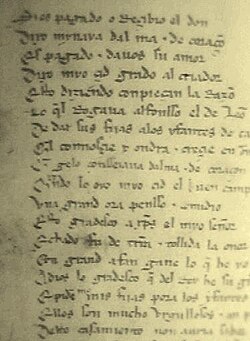 Si es pagado o Recibio el don
Dixo mynaya dal ma · de coraço
Es pagado · dauos su amor
Dixo myo çid grado al criador
Esto diziendo conpieçan la Razon
Lo ql Rogaua alfonsso el de Leo
De dar sus fijas alos yfantes de ca
Ql connosçie y ondra · creçie en on
Q gelo conseiaua dalma · de coraçon
Qndo lo oyo myo çid el buen camp
Vna grand ora penSso · comidio
Esto gradesco a xps el myo señor
Echado fu de trra · tollida la onor
Con grand afan gane lo q he yo
A dios lo gradesco q del Rey he su gra
E piden mis fijas pora los yfantes
Ellos son mucho Vrgullosos · an
Deste casamiento non auria sabor